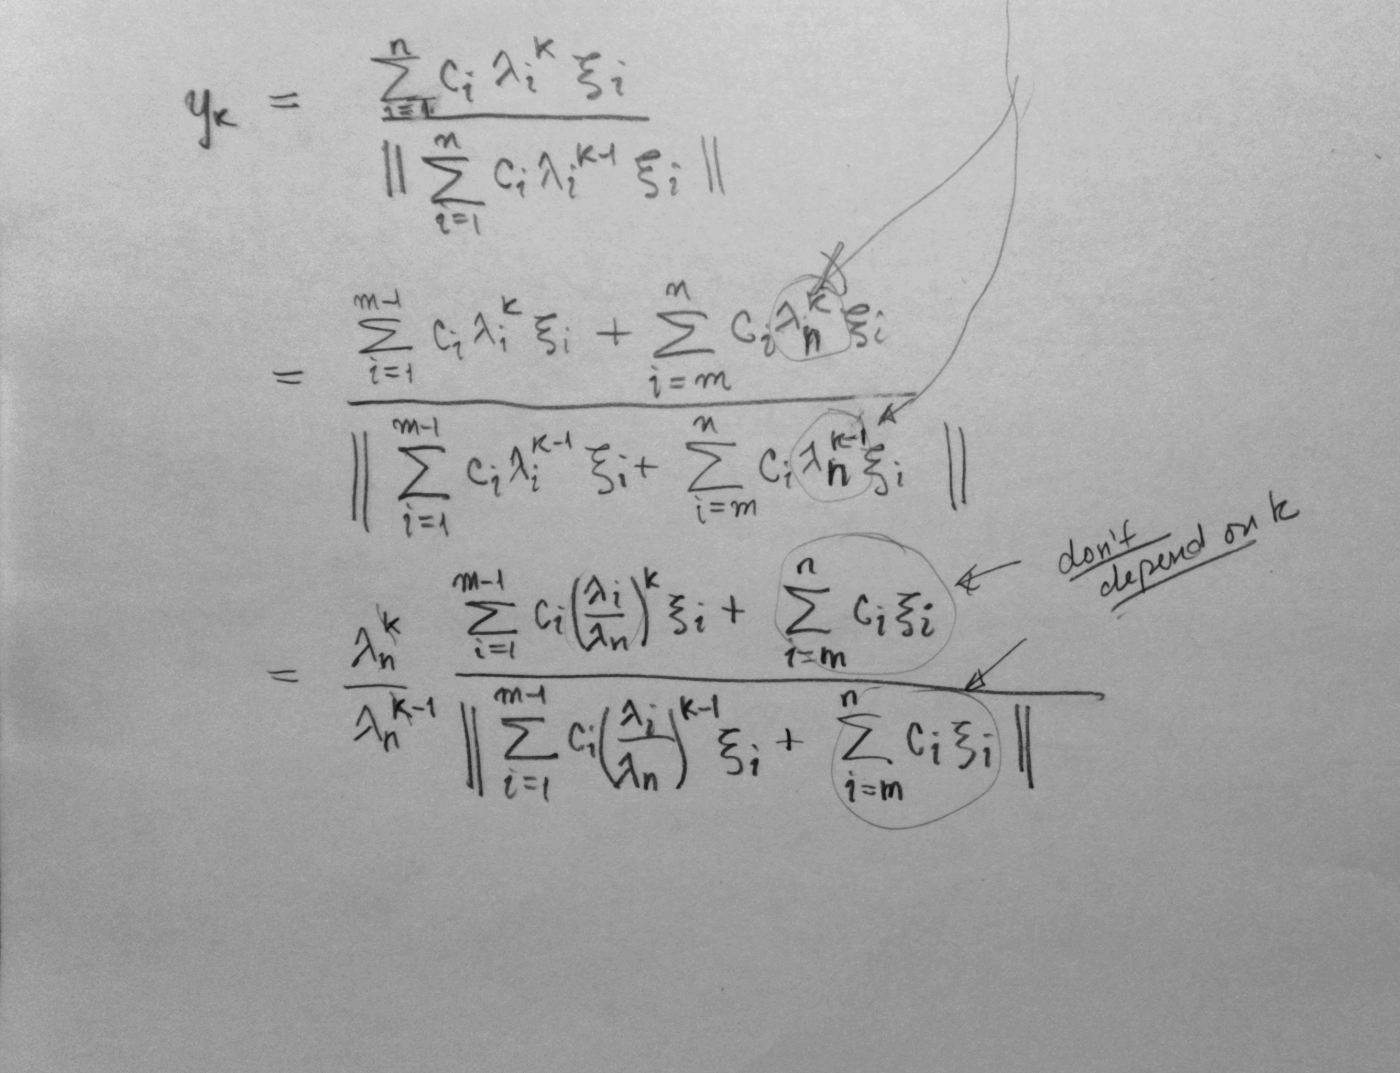 y_k = \frac{\sum_{i=1}^{n} c_i \lambda_i^k \xi_i}{\| \sum_{i=1}^{n} c_i \lambda_i^{k-1} \xi_i \|}
= \frac{\sum_{i=1}^{m-1} c_i \lambda_i^k \xi_i + \sum_{i=m}^{n} c_i \lambda_n^k \xi_i}{\| \sum_{i=1}^{m-1} c_i \lambda_i^{k-1} \xi_i + \sum_{i=m}^{n} c_i \lambda_n^{k-1} \xi_i \|}
= \frac{\lambda_n^k}{\lambda_n^{k-1}} \frac{\sum_{i=1}^{m-1} c_i \left(\frac{\lambda_i}{\lambda_n}\right)^k \xi_i + \sum_{i=m}^{n} c_i \xi_i}{\| \sum_{i=1}^{m-1} c_i \left(\frac{\lambda_i}{\lambda_n}\right)^{k-1} \xi_i + \sum_{i=m}^{n} c_i \xi_i \|}
don't
depend on k